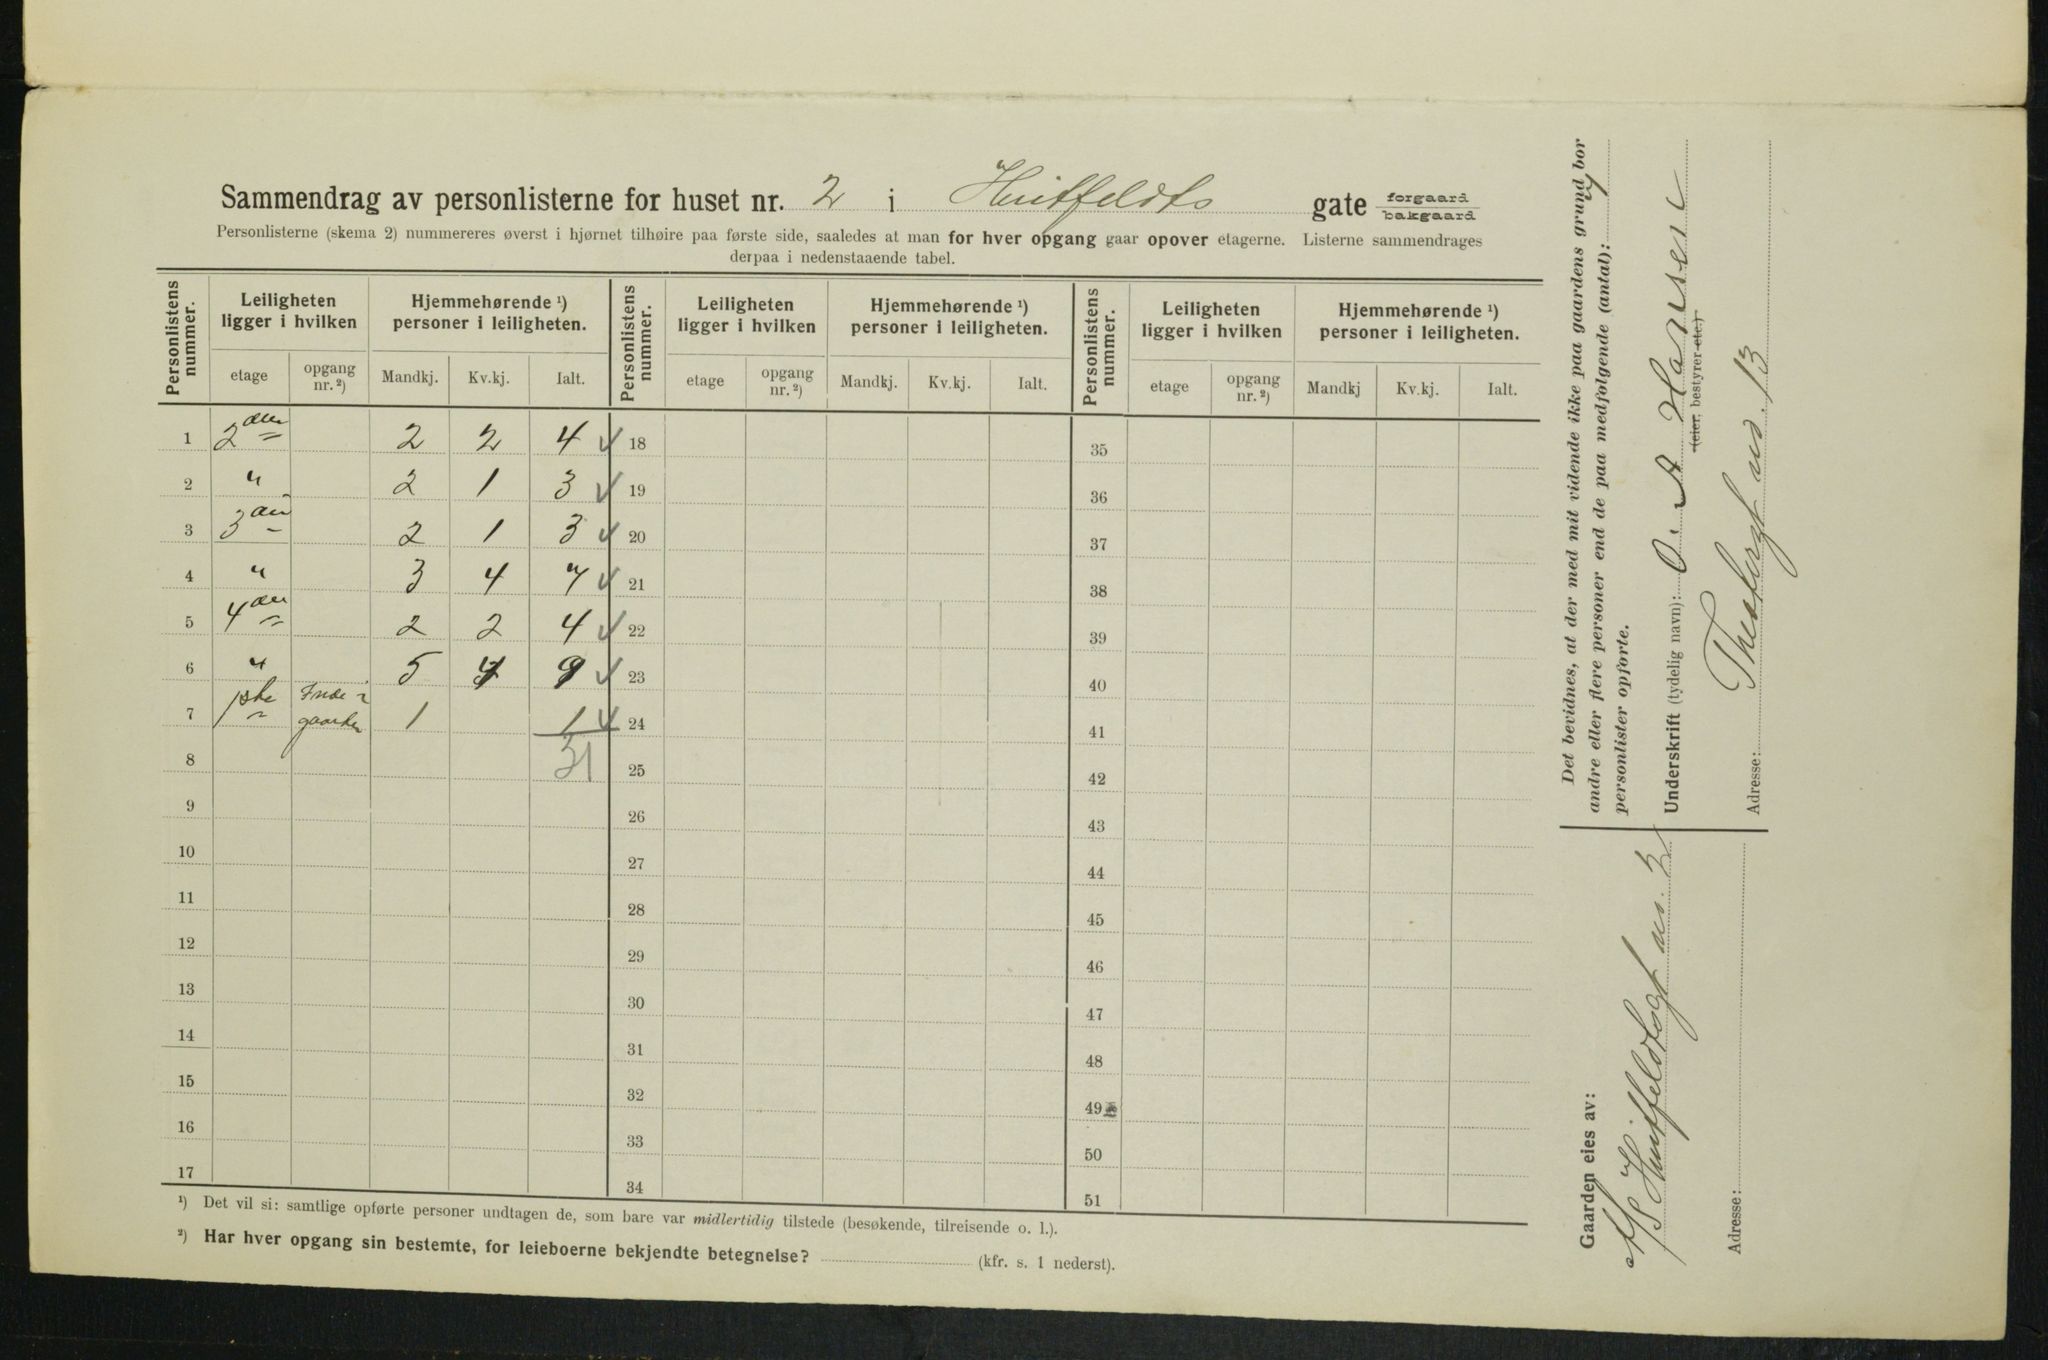 Sammendrag av personlisterne for huset nr. 2 i Huitfeldts gate forgaard bakgaard
Personlisterne (skema 2) nummereres øverst i hjørnet tilhøire paa første side, saaledes at man for hver opgang gaar opover etagerne. Listerne sammendrages
derpaa i nedenstaaende tabel.
Personlistens nummer. Leiligheten ligger i hvilken Hjemmehørende ¹) personer i leiligheten. Personlistens nummer. Leiligheten ligger i hvilken Hjemmehørende ¹) personer i leiligheten. Personlistens nummer. Leiligheten ligger i hvilken Hjemmehørende ¹) personer i leiligheten.
etage opgang nr. ²) Mandkj. Kv.kj. Ialt. etage opgang nr. ²) Mandkj. Kv.kj. Ialt. etage opgang nr. ²) Mandkj Kv.kj. Ialt.
1 2den 2 2 4 18 35
2 " 2 1 3 19 36
3 3die 2 1 3 20 37
4 " 3 4 7 21 38
5 4de 2 2 4 22 39
6 " 5 4 9 23 40
7 1ste Inde i gaarden 1 1 24 41
8 31 25 42
9 26 43
10 27 44
11 28 45
12 29 46
13 30 47
14 31 48
15 32 49
16 33 50
17 34 51
¹) Det vil si: samtlige opførte personer undtagen de, som bare var midlertidig tilstede (besøkende, tilreisende o. l.).
²) Har hver opgang sin bestemte, for leieboerne bekjendte betegnelse? (kfr. s. 1 nederst).
Det bevidnes, at der med mit vidende ikke paa gaardens grund bor
andre eller flere personer end de paa medfølgende (antal): 7
personlister opførte.
Underskrift (tydelig navn): O. A Hansen
(eier, bestyrer etc.)
Adresse: nd. 13
Gaarden eies av:
A/S Huitfeldtsgt no. 2
Adresse: